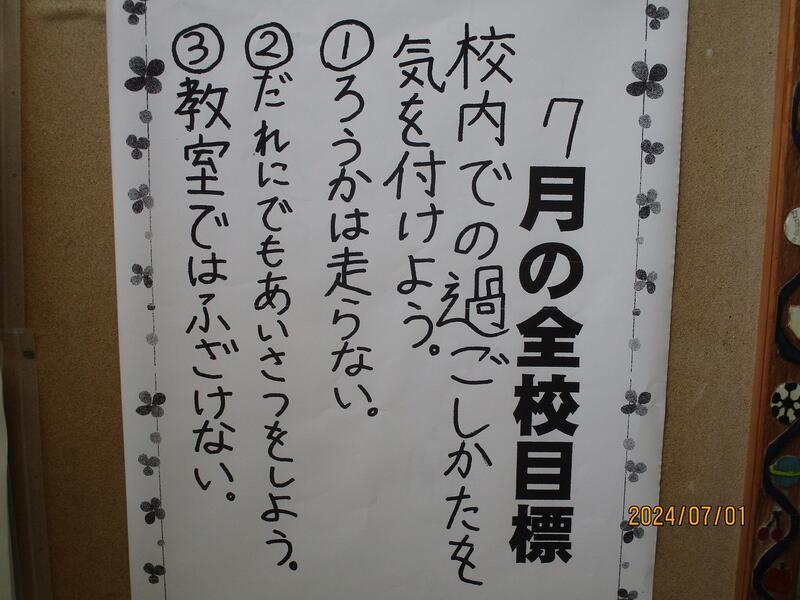 7月の全校目標
校内での過ごしかたを
気を付けよう。
①ろうかは走らない。
②だれにでもあいさつをしよう。
③教室ではふざけない。
2024/07/01